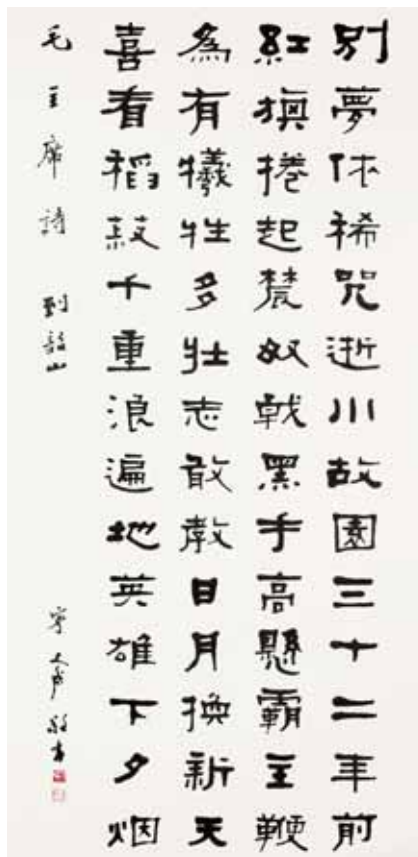 別夢依稀咒逝川故園三十二年前
紅旗捲起農奴戟黑手高懸霸主鞭
為有犧牲多壯志敢教日月換新天
喜看稻菽千重浪遍地英雄下夕烟
毛主席詩 到韶山 寧斧成敬書